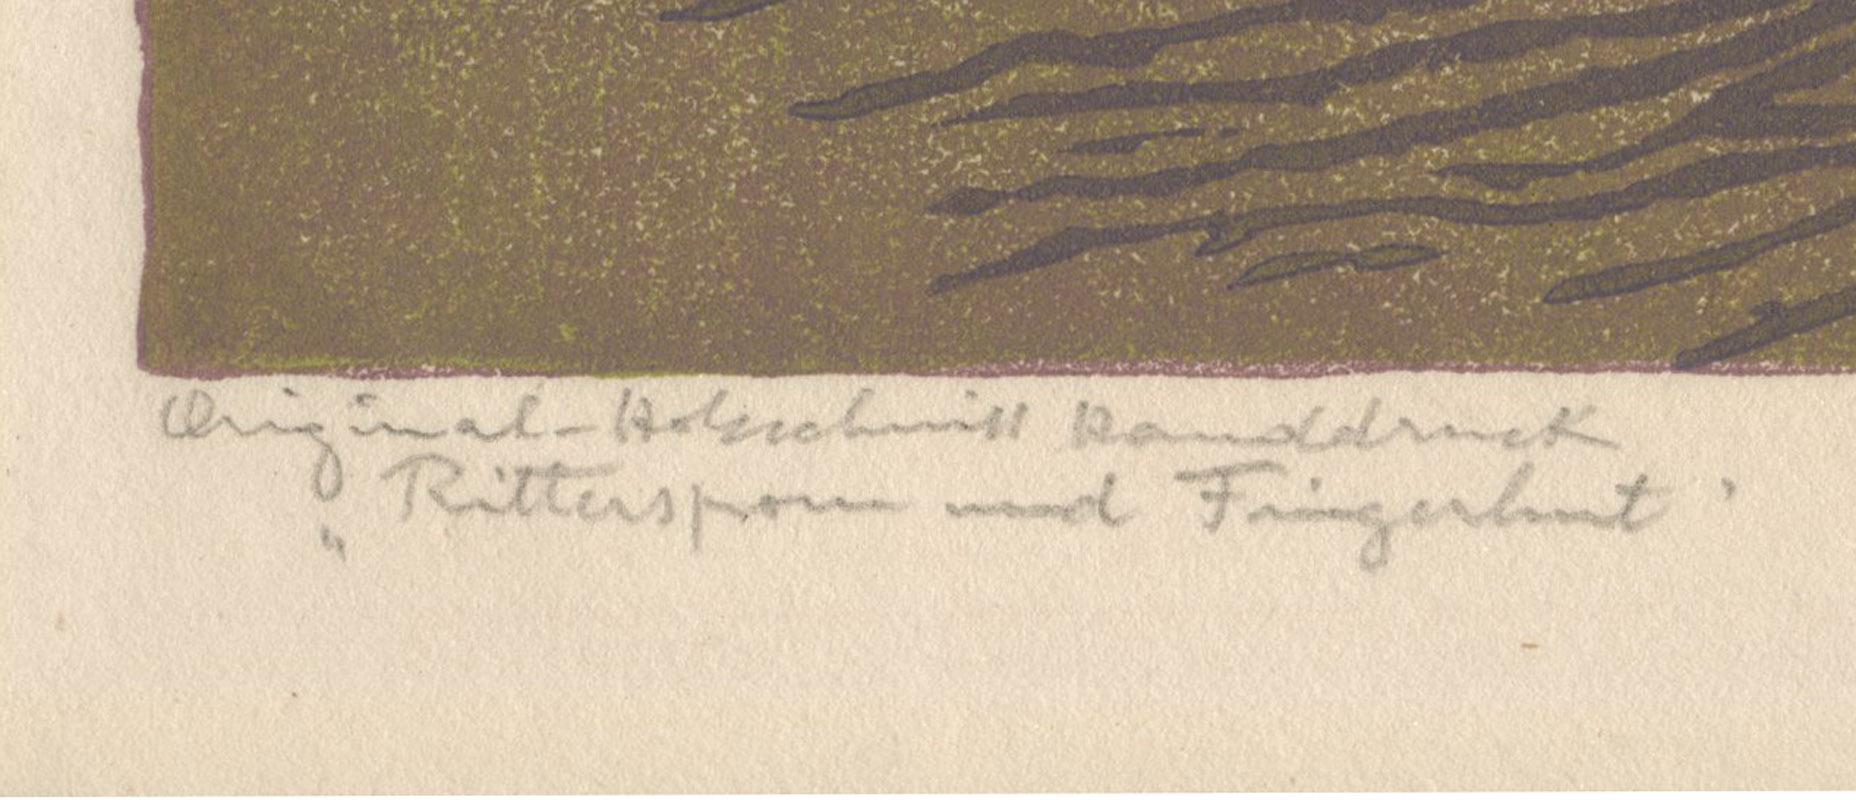 Original-Holzschnitt Handdruck
„Rittersporn und Fingerhut'